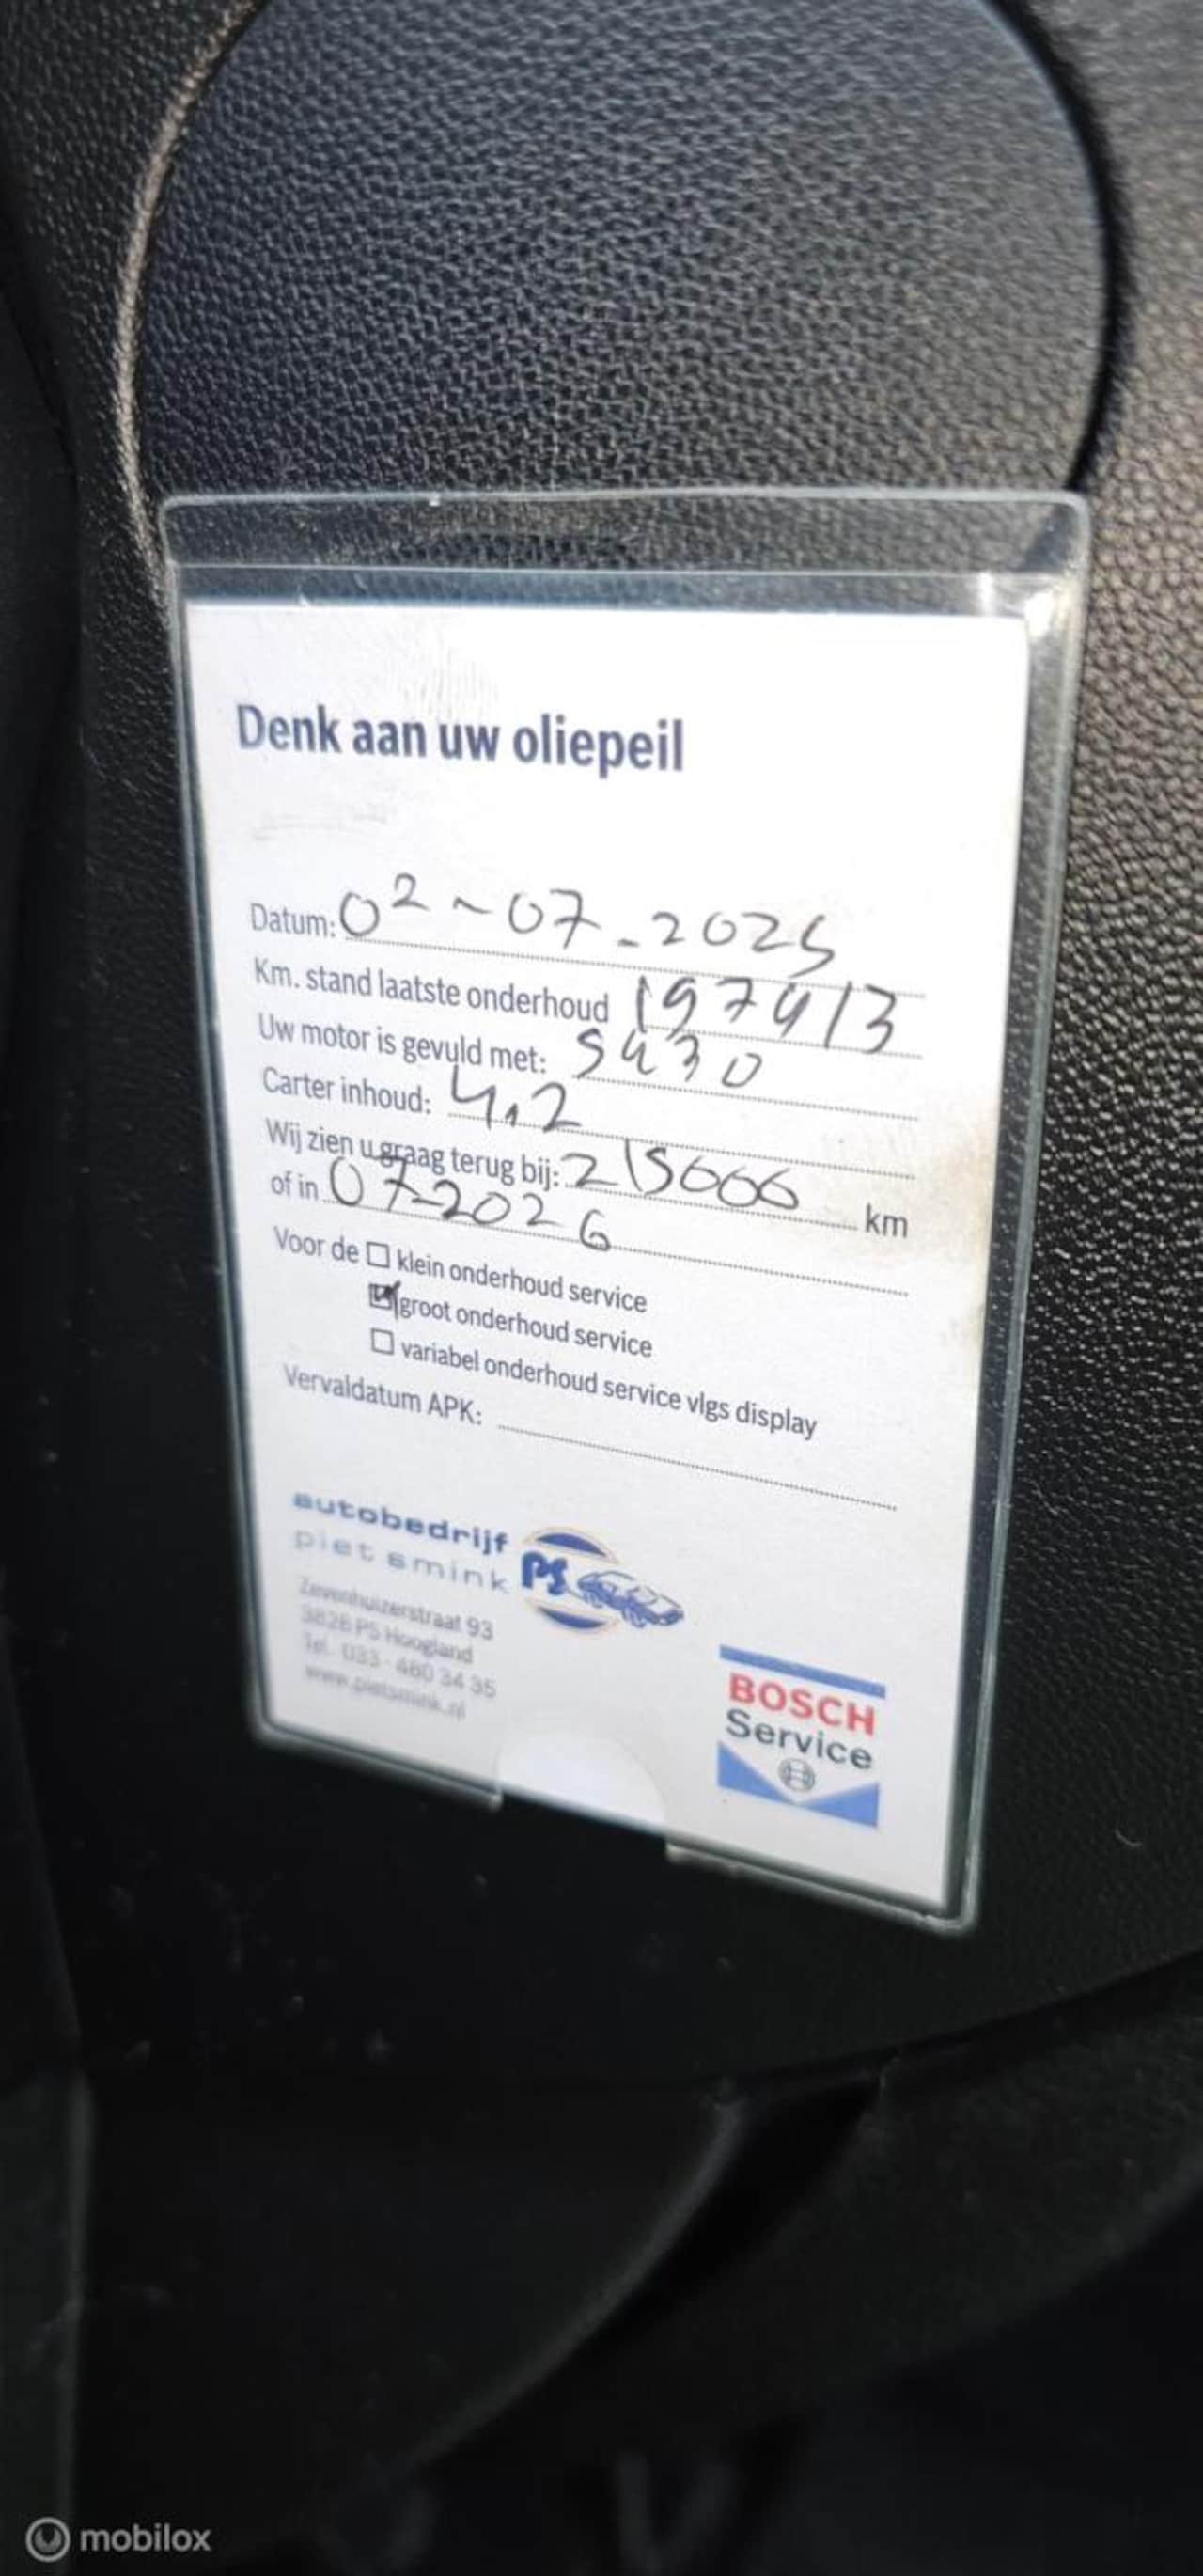 Denk aan uw oliepeil
Datum: 02-07-2025
Km. stand laatste onderhoud 197413
Uw motor is gevuld met: 5W30
Carter inhoud: 4,2
Wij zien u graag terug bij: 215000 km
of in 07-2026
Voor de klein onderhoud service
groot onderhoud service
variabel onderhoud service vlgs display
Vervaldatum APK:
autobedrijf
piet smink PS
Zevenhuizerstraat 93
3828 PS Hoogland
Tel. 033 - 480 34 35
www.pietsmink.nl
BOSCH
Service
mobilox